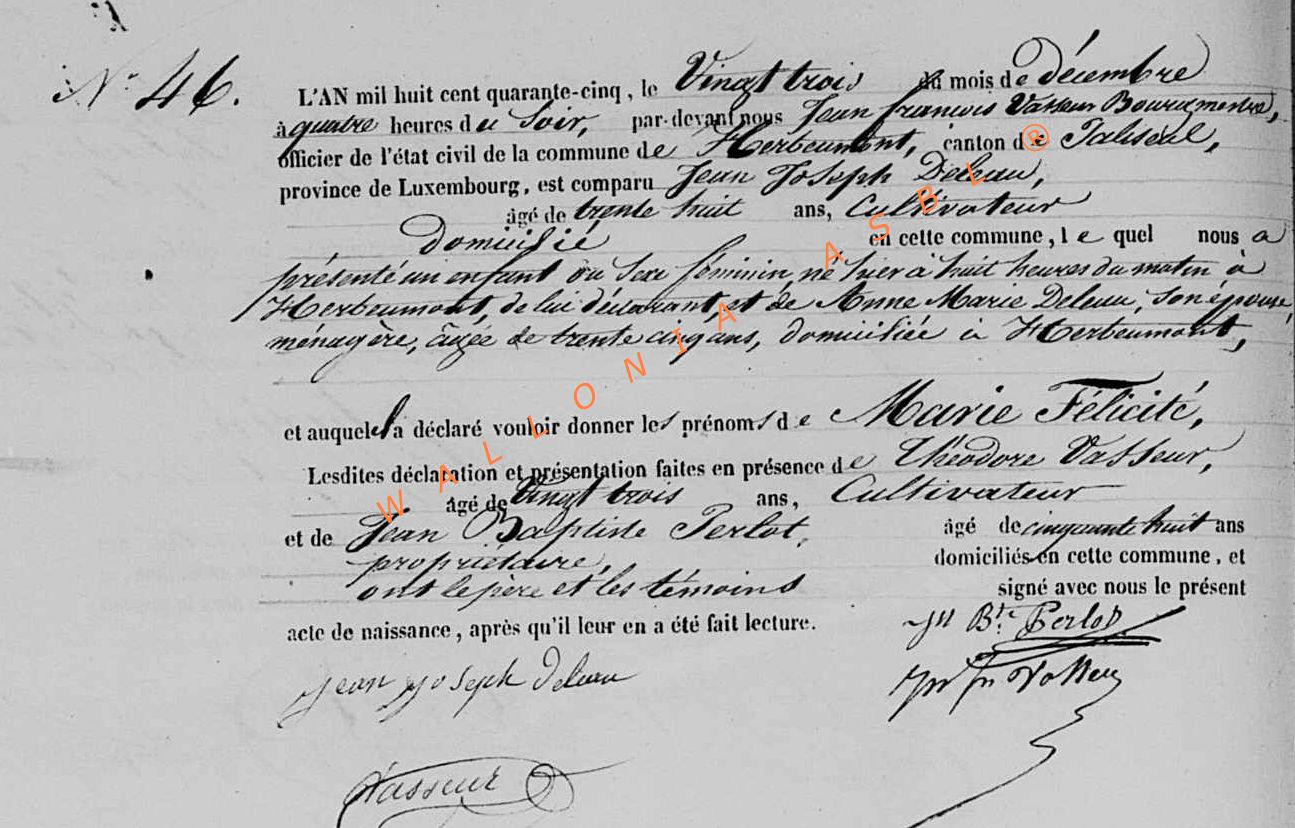 N° 46.
L'AN mil huit cent quarante-cinq, le Vingt trois du mois de décembre
à quatre heures du Soir, par-devant nous Jean françois Vasseur Bourgmestre,
officier de l'état civil de la commune de Herbeumont, canton de Paliseul,
province de Luxembourg, est comparu Jean Joseph Deleau,
âgé de trente huit ans, Cultivateur
Domicilié en cette commune, le quel nous a
présenté un enfant du Sexe féminin, né hier à huit heures du matin à
Herbeumont, de lui déclarant, et de Anne Marie Deleau, son épouse,
ménagère, âgée de trente cinq ans, domiciliée à Herbeumont,
et auquel il a déclaré vouloir donner les prénoms de Marie Félicité,
Lesdites déclaration et présentation faites en présence de Théodore Vasseur,
âgé de Vingt trois ans, Cultivateur
et de Jean Baptiste Perlot, âgé de cinquante huit ans
propriétaire, domiciliés en cette commune, et
ont le père et les témoins signé avec nous le présent
acte de naissance, après qu'il leur en a été fait lecture.
Jn Bte Perlot
Jean Joseph Deleau
Jn fn Vasseur
Vasseur
WALLONIA ASBL ®